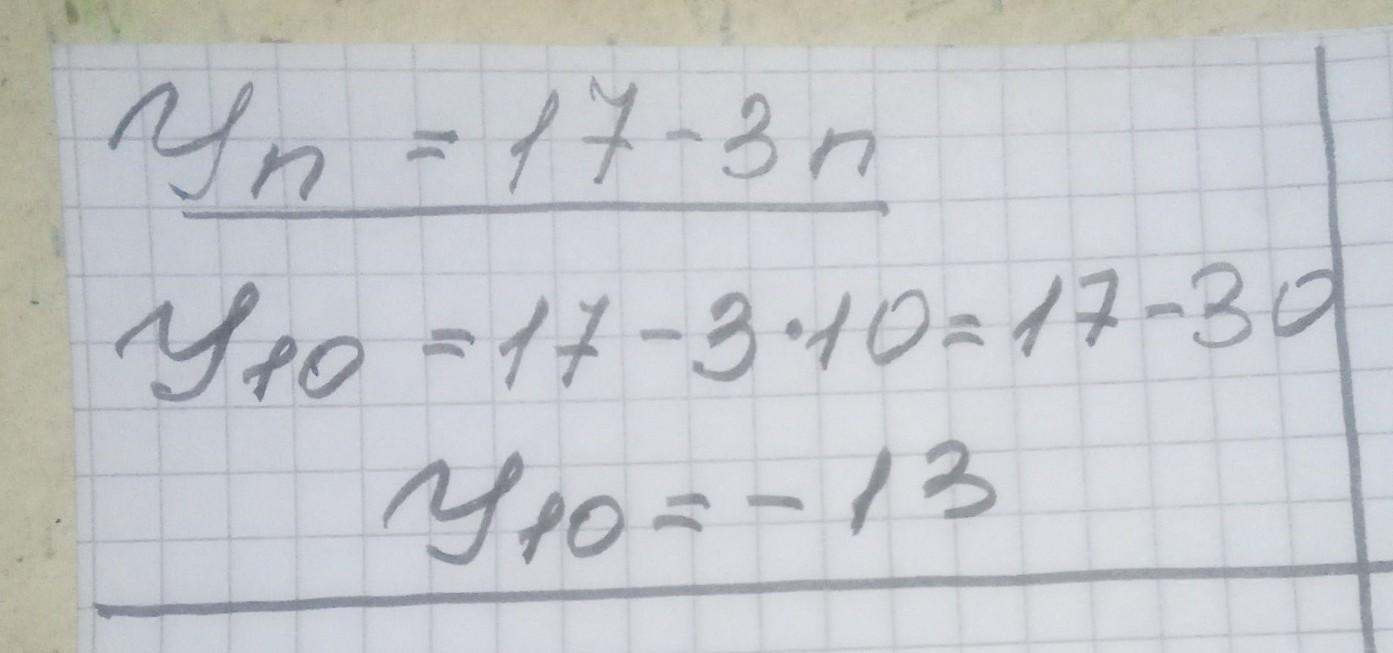 Yn = 17 - 3n
Y10 = 17 - 3·10 = 17 - 30
Y10 = - 13